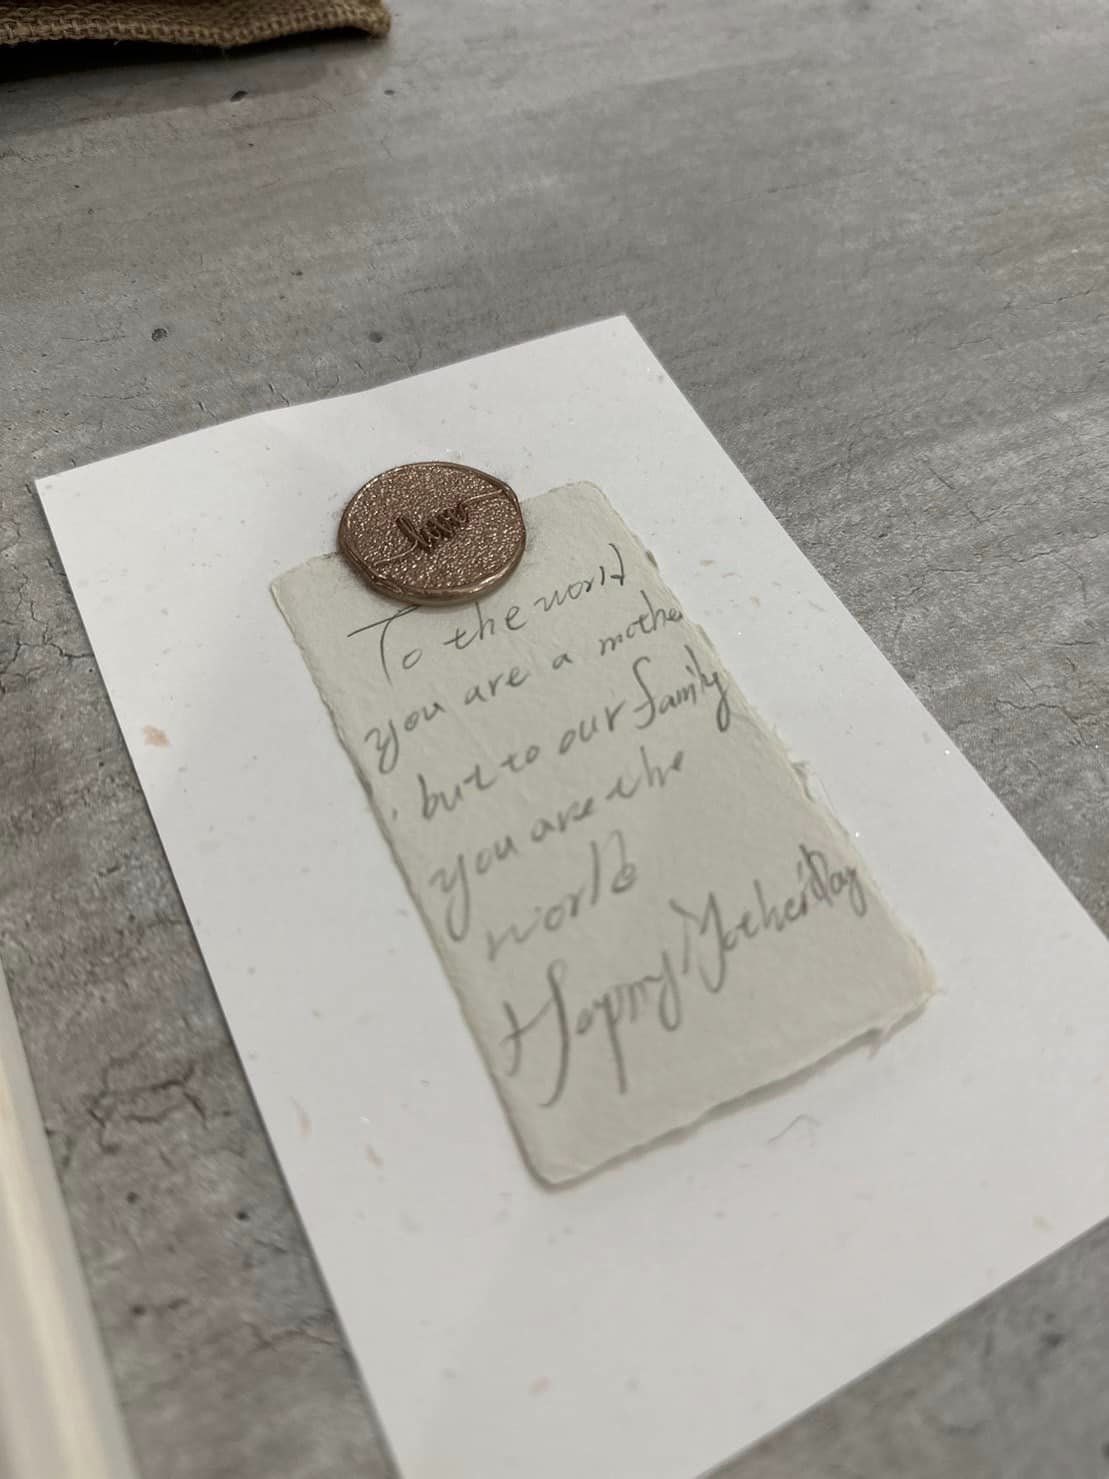 To the world
you are a mother
but to our family
you are the
world
Happy Mother'day